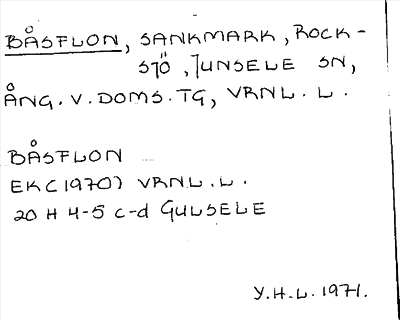 BÅSFLON, SANKMARK, ROCK-
SJÖ, JUNSELE SN,
ÅNG. V. DOMS. TG, VRNL. L.
BÅSFLON
EK (1970) VRNL. L.
20 H 4-5 c-d GULSELE
Y.H.L. 1971.